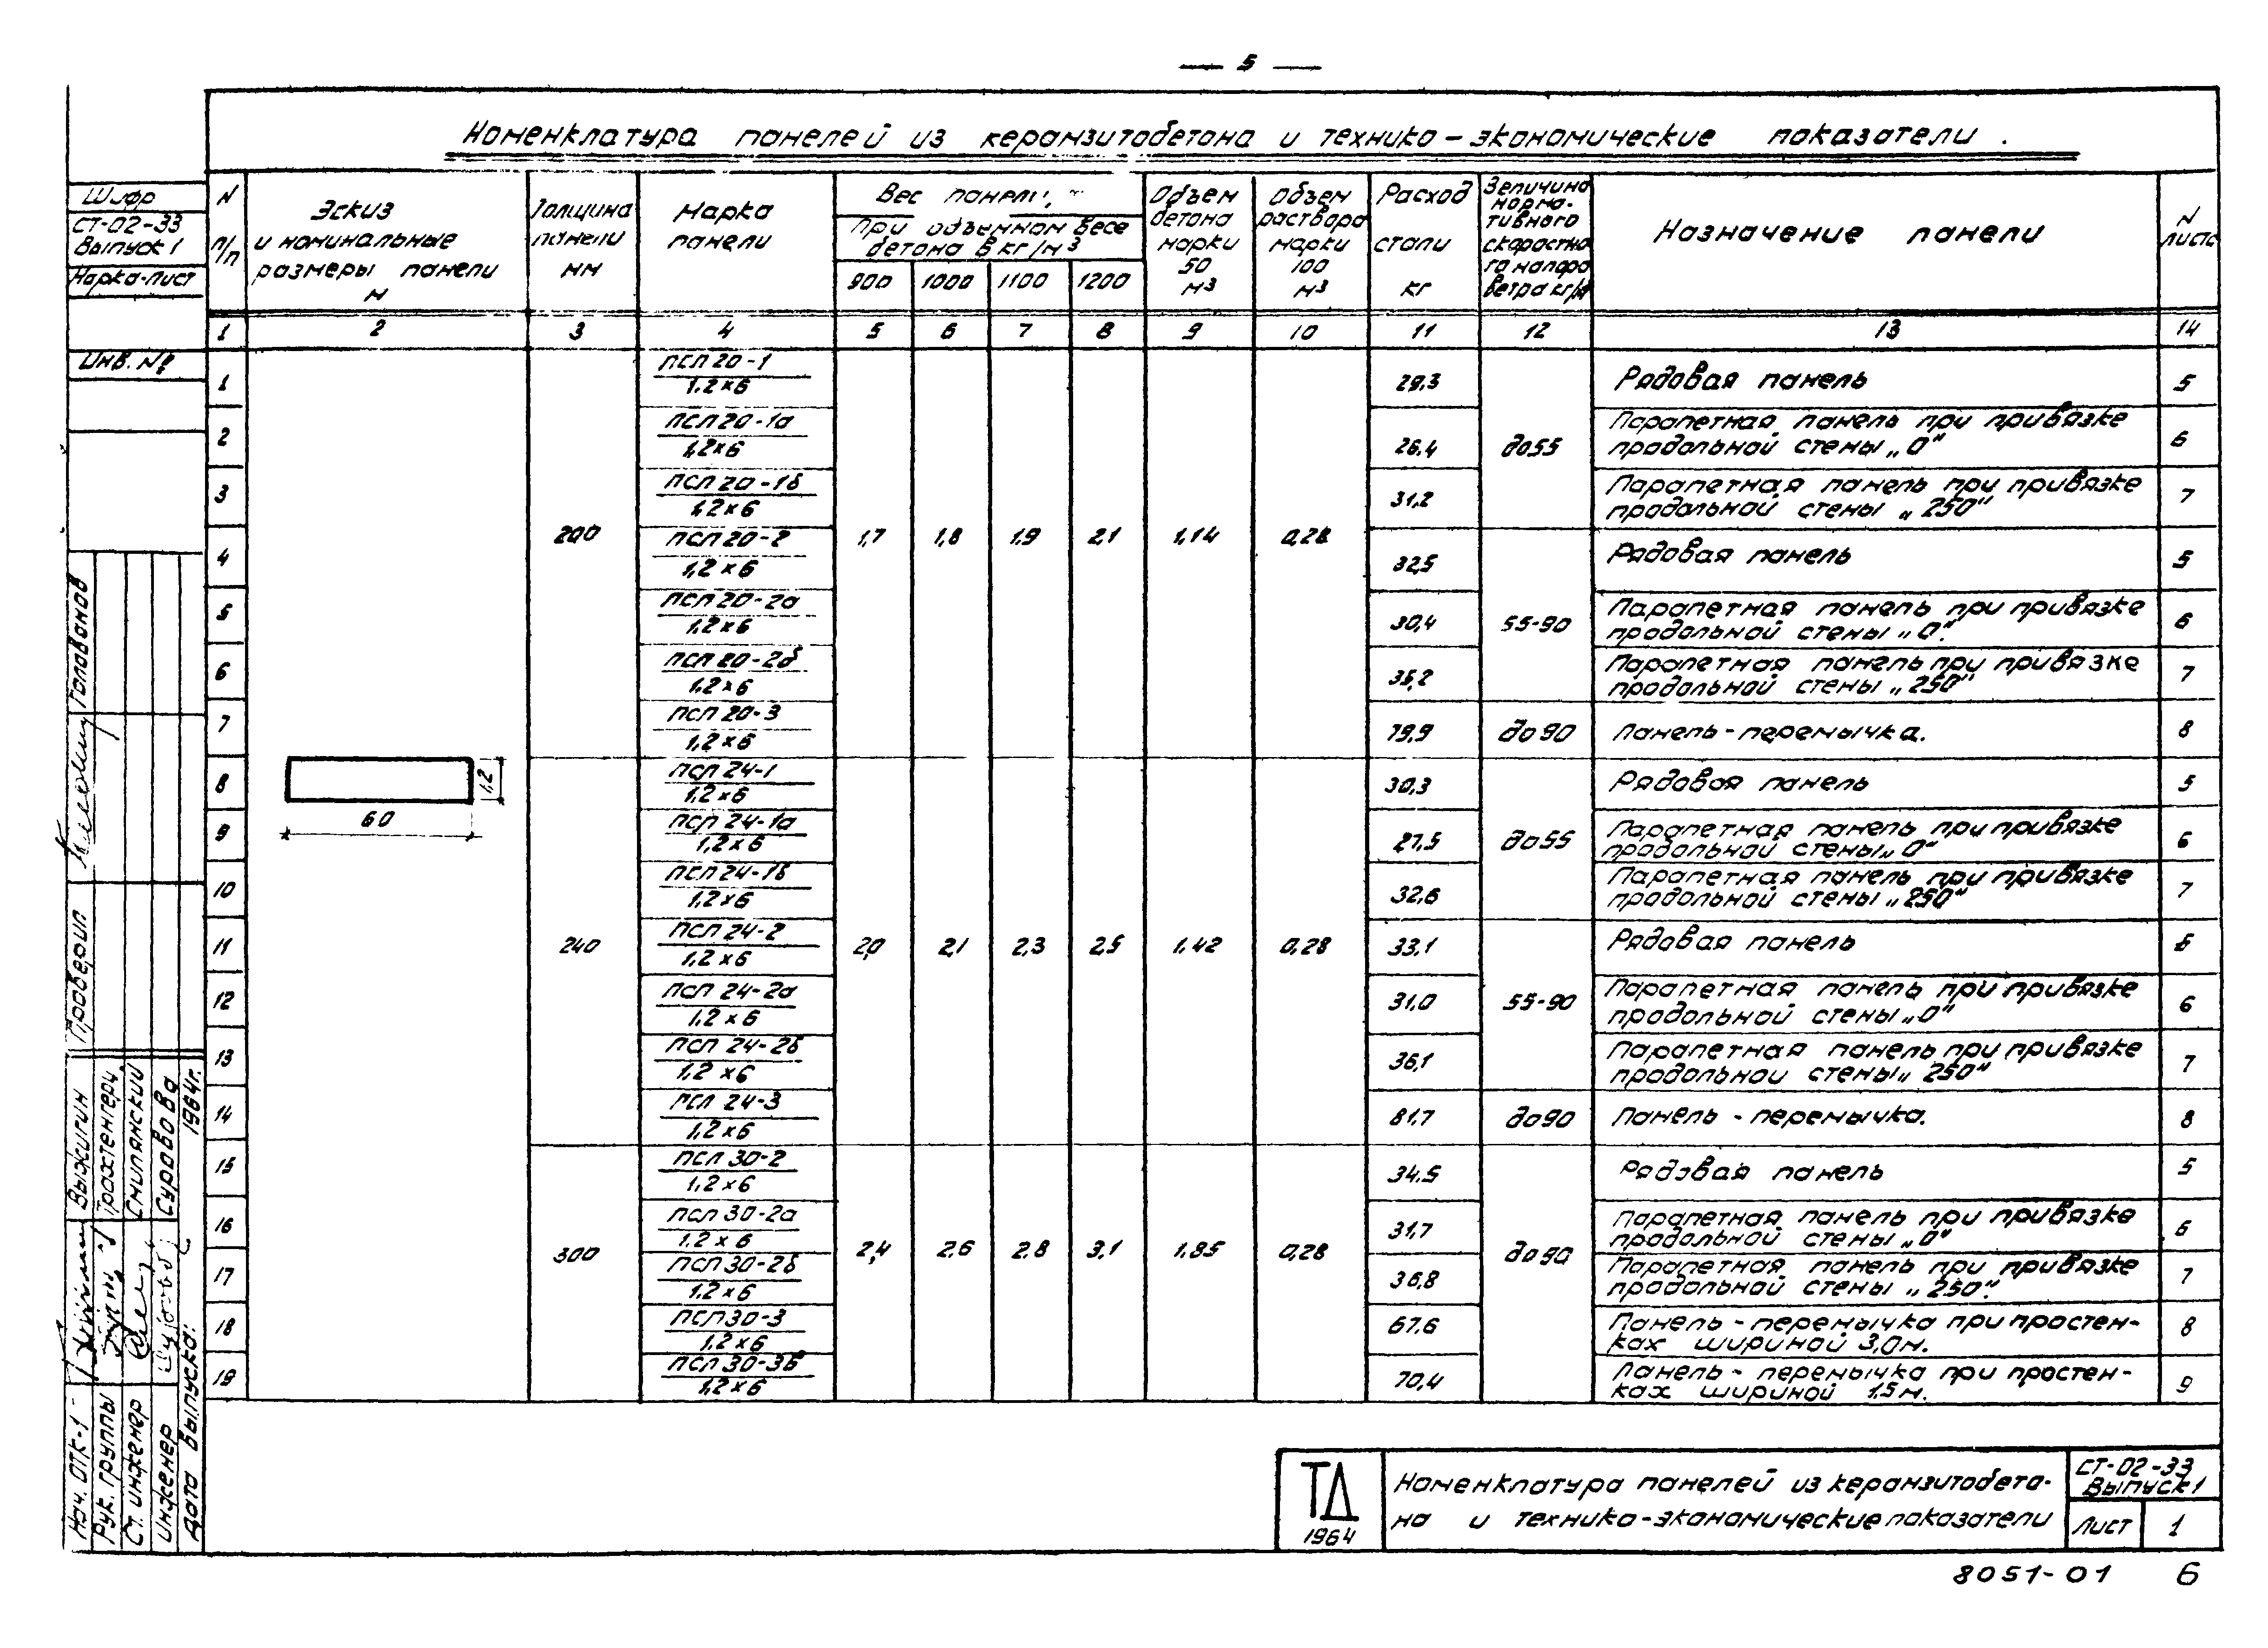 — 5 —
Номенклатура панелей из керамзитобетона и технико-экономические показатели.
Шифр
СТ-02-33
Выпуск 1
Марка-лист
Инв. №
N п/п
Эскиз и номинальные размеры панели м
Толщина панели мм
Марка панели
Вес панели, т
При объемном весе бетона в кг/м³
900 1000 1100 1200
Объем бетона марки 50 м³
Объем раствора марки 100 м³
Расход стали кг
Величина нормативного скоростного напора ветра кг/м²
Назначение панели
N листа
1 2 3 4 5 6 7 8 9 10 11 12 13 14
1 ПСП 20-1 1,2×6 29.3 Рядовая панель 5
2 ПСП 20-1а 1,2×6 26.4 до 55 Парапетная панель при привязке продольной стены „0" 6
3 ПСП 20-1б 1,2×6 31,2 Парапетная панель при привязке продольной стены „250" 7
200 1,7 1,8 1,9 2,1 1,14 0,28
4 ПСП 20-2 1,2×6 32,5 Рядовая панель 5
5 ПСП 20-2а 1,2×6 30,4 55-90 Парапетная панель при привязке продольной стены „0". 6
6 ПСП 20-2б 1,2×6 35,2 Парапетная панель при привязке продольной стены „250" 7
7 ПСП 20-3 1,2×6 79,9 до 90 Панель-перемычка. 8
1,2
60
8 ПСП 24-1 1,2×6 30,3 Рядовая панель 5
9 ПСП 24-1а 1,2×6 27,5 до 55 Парапетная панель при привязке продольной стены „0" 6
10 ПСП 24-1б 1,2×6 32,6 Парапетная панель при привязке продольной стены „250" 7
11 240 ПСП 24-2 1,2×6 2,0 2,1 2,3 2,5 1,42 0,28 33,1 Рядовая панель 5
12 ПСП 24-2а 1,2×6 31,0 55-90 Парапетная панель при привязке продольной стены „0" 6
13 ПСП 24-2б 1,2×6 36,1 Парапетная панель при привязке продольной стены „250" 7
14 ПСП 24-3 1,2×6 81,7 до 90 Панель-перемычка. 8
15 ПСП 30-2 1,2×6 34.5 Рядовая панель 5
16 ПСП 30-2а 1,2×6 31,7 Парапетная панель при привязке продольной стены „0" 6
300 2,4 2,6 2,8 3,1 1,85 0,28 до 90
17 ПСП 30-2б 1,2×6 36,8 Парапетная панель при привязке продольной стены „250". 7
18 ПСП 30-3 1,2×6 67,6 Панель-перемычка при простенках шириной 3,0м. 8
19 ПСП 30-3б 1,2×6 70,4 Панель-перемычка при простенках шириной 1,5м. 9
Голованов
Проверил
Выжигин
Смилянский
Суровова
1964г.
Нач. ОТК-1
Рук. группы
Ст. инженер
Инженер
Дата выпуска:
ТД
1964
Номенклатура панелей из керамзитобето-
на и технико-экономические показатели
СТ-02-33
Выпуск 1
Лист 1
8051-01 6